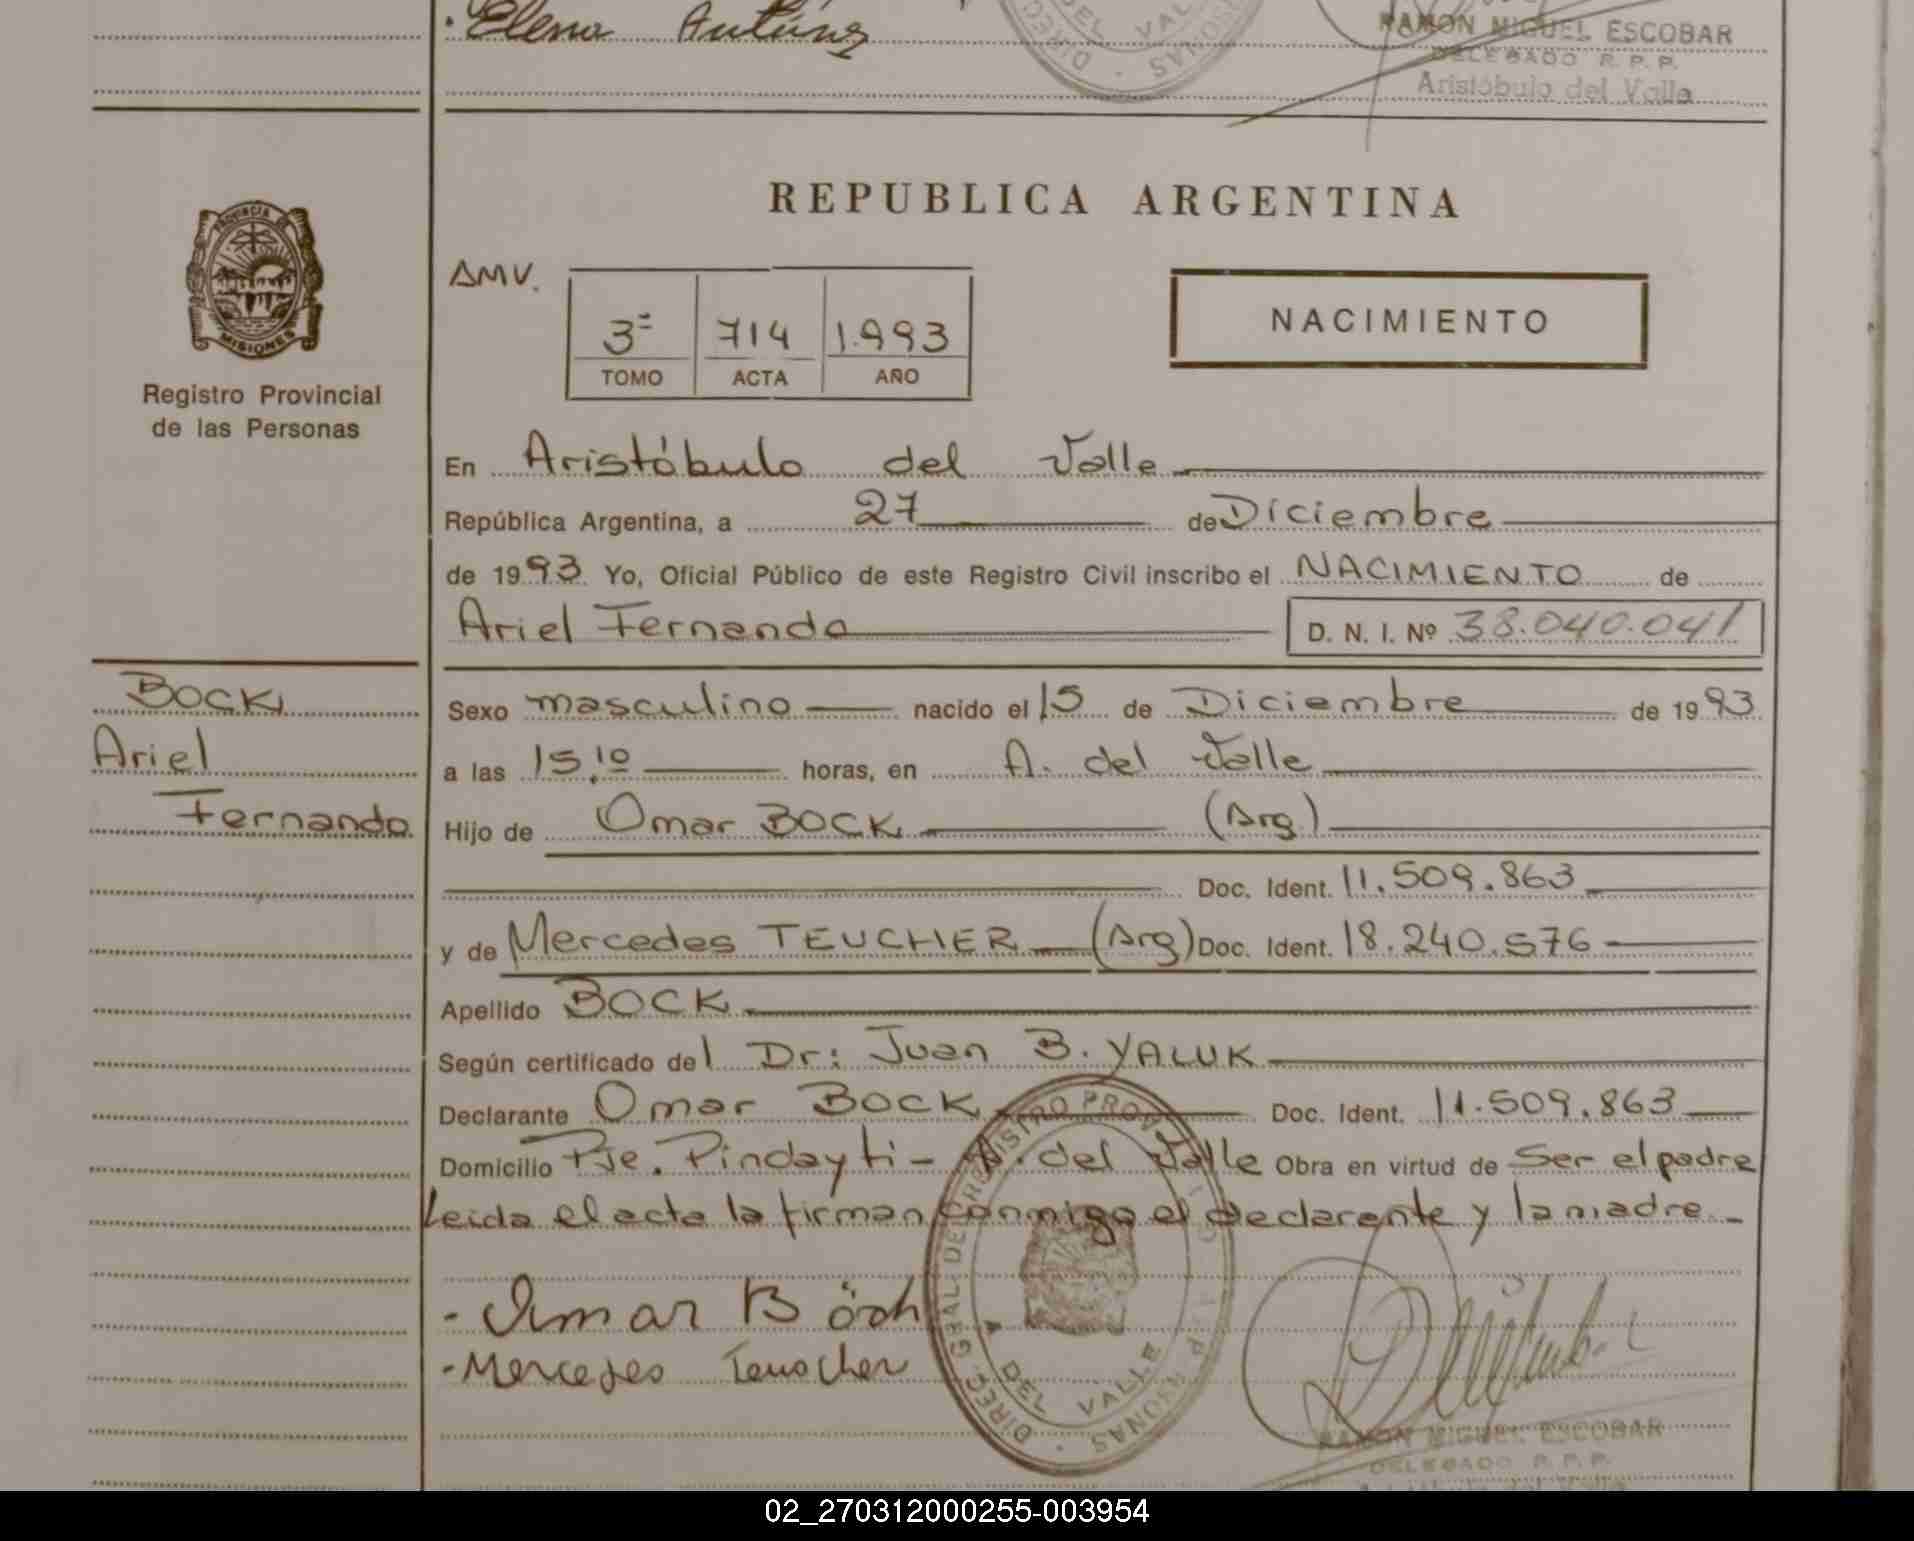 Elena Antúnez
RAMON MIGUEL ESCOBAR
DELEGADO R. P. P.
Aristóbulo del Valle
REPUBLICA ARGENTINA
PROVINCIA
MISIONES
Registro Provincial
de las Personas
AMV.
3º 714 1.993
TOMO ACTA AÑO
NACIMIENTO
En Aristóbulo del Valle
República Argentina, a 27 de Diciembre
de 1993 Yo, Oficial Público de este Registro Civil inscribo el NACIMIENTO de
Ariel Fernando D. N. I. Nº 38.040.041
BOCK
Ariel
Fernando
Sexo masculino nacido el 15 de Diciembre de 1993
a las 15,10 horas, en A. del Valle
Hijo de Omar BOCK (Arg)
Doc. Ident. 11.509.863
y de Mercedes TEUCHER (Arg) Doc. Ident. 18.240.576
Apellido BOCK
Según certificado del Dr: Juan B. YALUK
Declarante Omar BOCK Doc. Ident. 11.509.863
Domicilio Pje. Pindayti - A. del Valle Obra en virtud de Ser el padre
Leida el acta la firman conmigo el declarante y la madre
- Omar Böck
- Mercedes Teucher
DIREC. GRAL. DE REGISTRO PROVINCIAL PERSONAS
A. DEL VALLE
RAMON MIGUEL ESCOBAR
DELEGADO R. P. P.
02_270312000255-003954